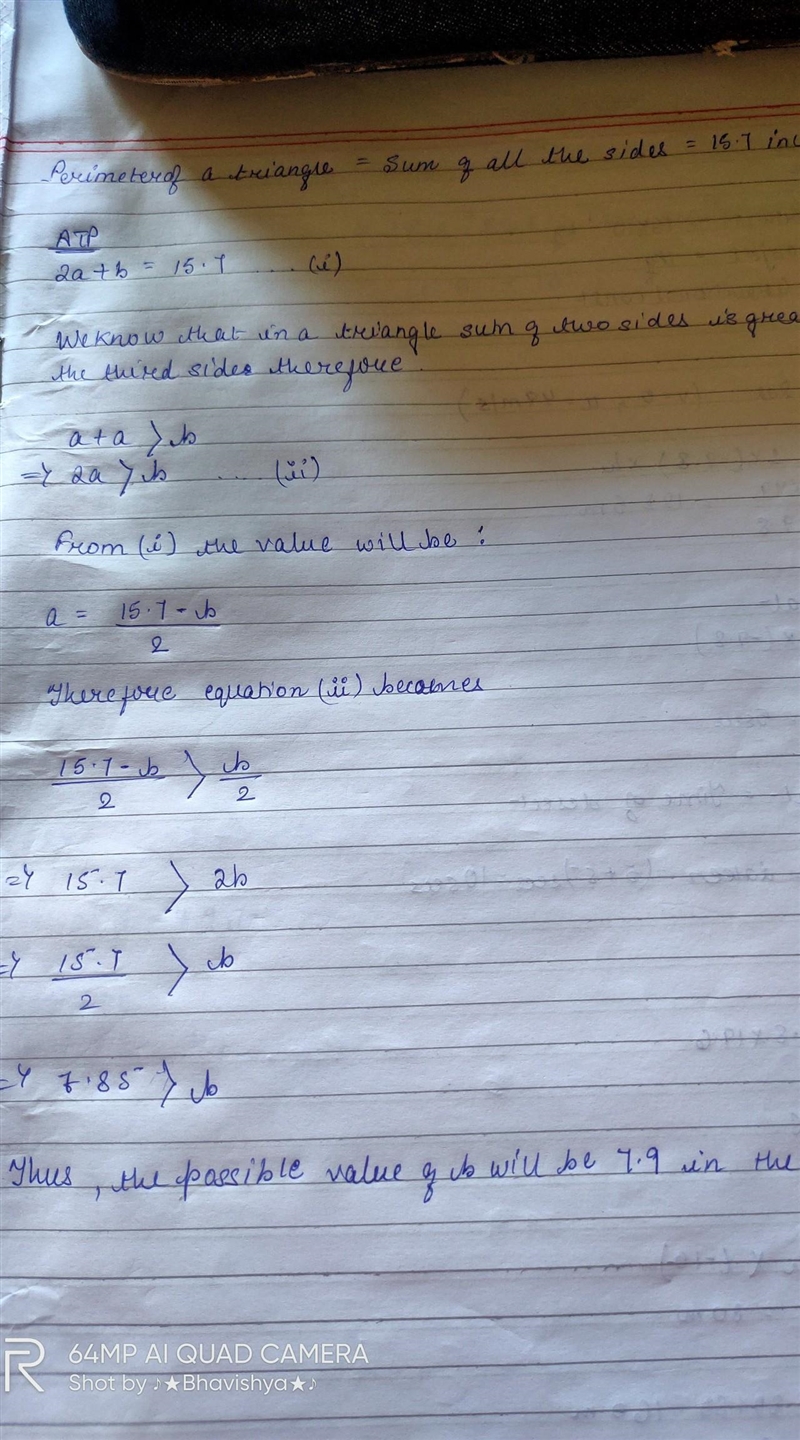 Perimeter of a triangle = Sum of all the sides = 15.7 inc
ATP
2a + b = 15.7 .... (i)
We know that in a triangle sum of two sides is grea
the third sides therefore.
a + a > b
=> 2a > b .... (ii)
From (i) the value will be :
a = 15.7 - b / 2
Therefore equation (ii) becomes
15.7 - b / 2 > b / 2
=> 15.7 > 2b
=> 15.7 / 2 > b
=> 7.85 > b
Thus, the possible value of b will be 7.9 in the
64MP AI QUAD CAMERA
Shot by ♪★Bhavishya★♪